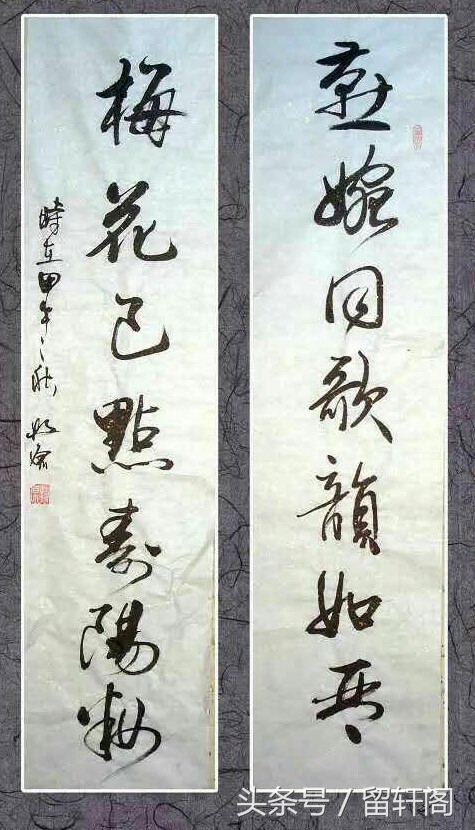 燕婉同歌韻如
梅花已點壽陽妝
時在甲午之秋
头条号/留轩阁